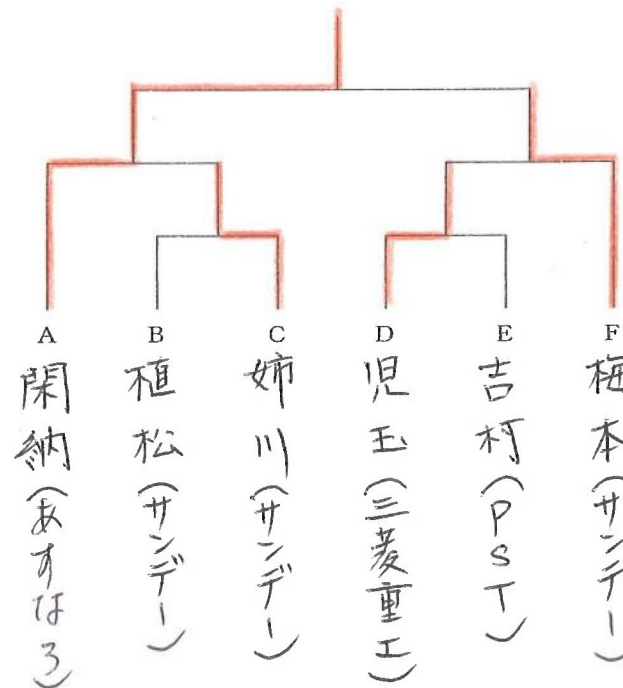 A
B
C
D
E
F
閑納(あすなろ)
植松(サンデー)
姉川(サンデー)
児玉(三菱重工)
吉村(PST)
梅本(サンデー)